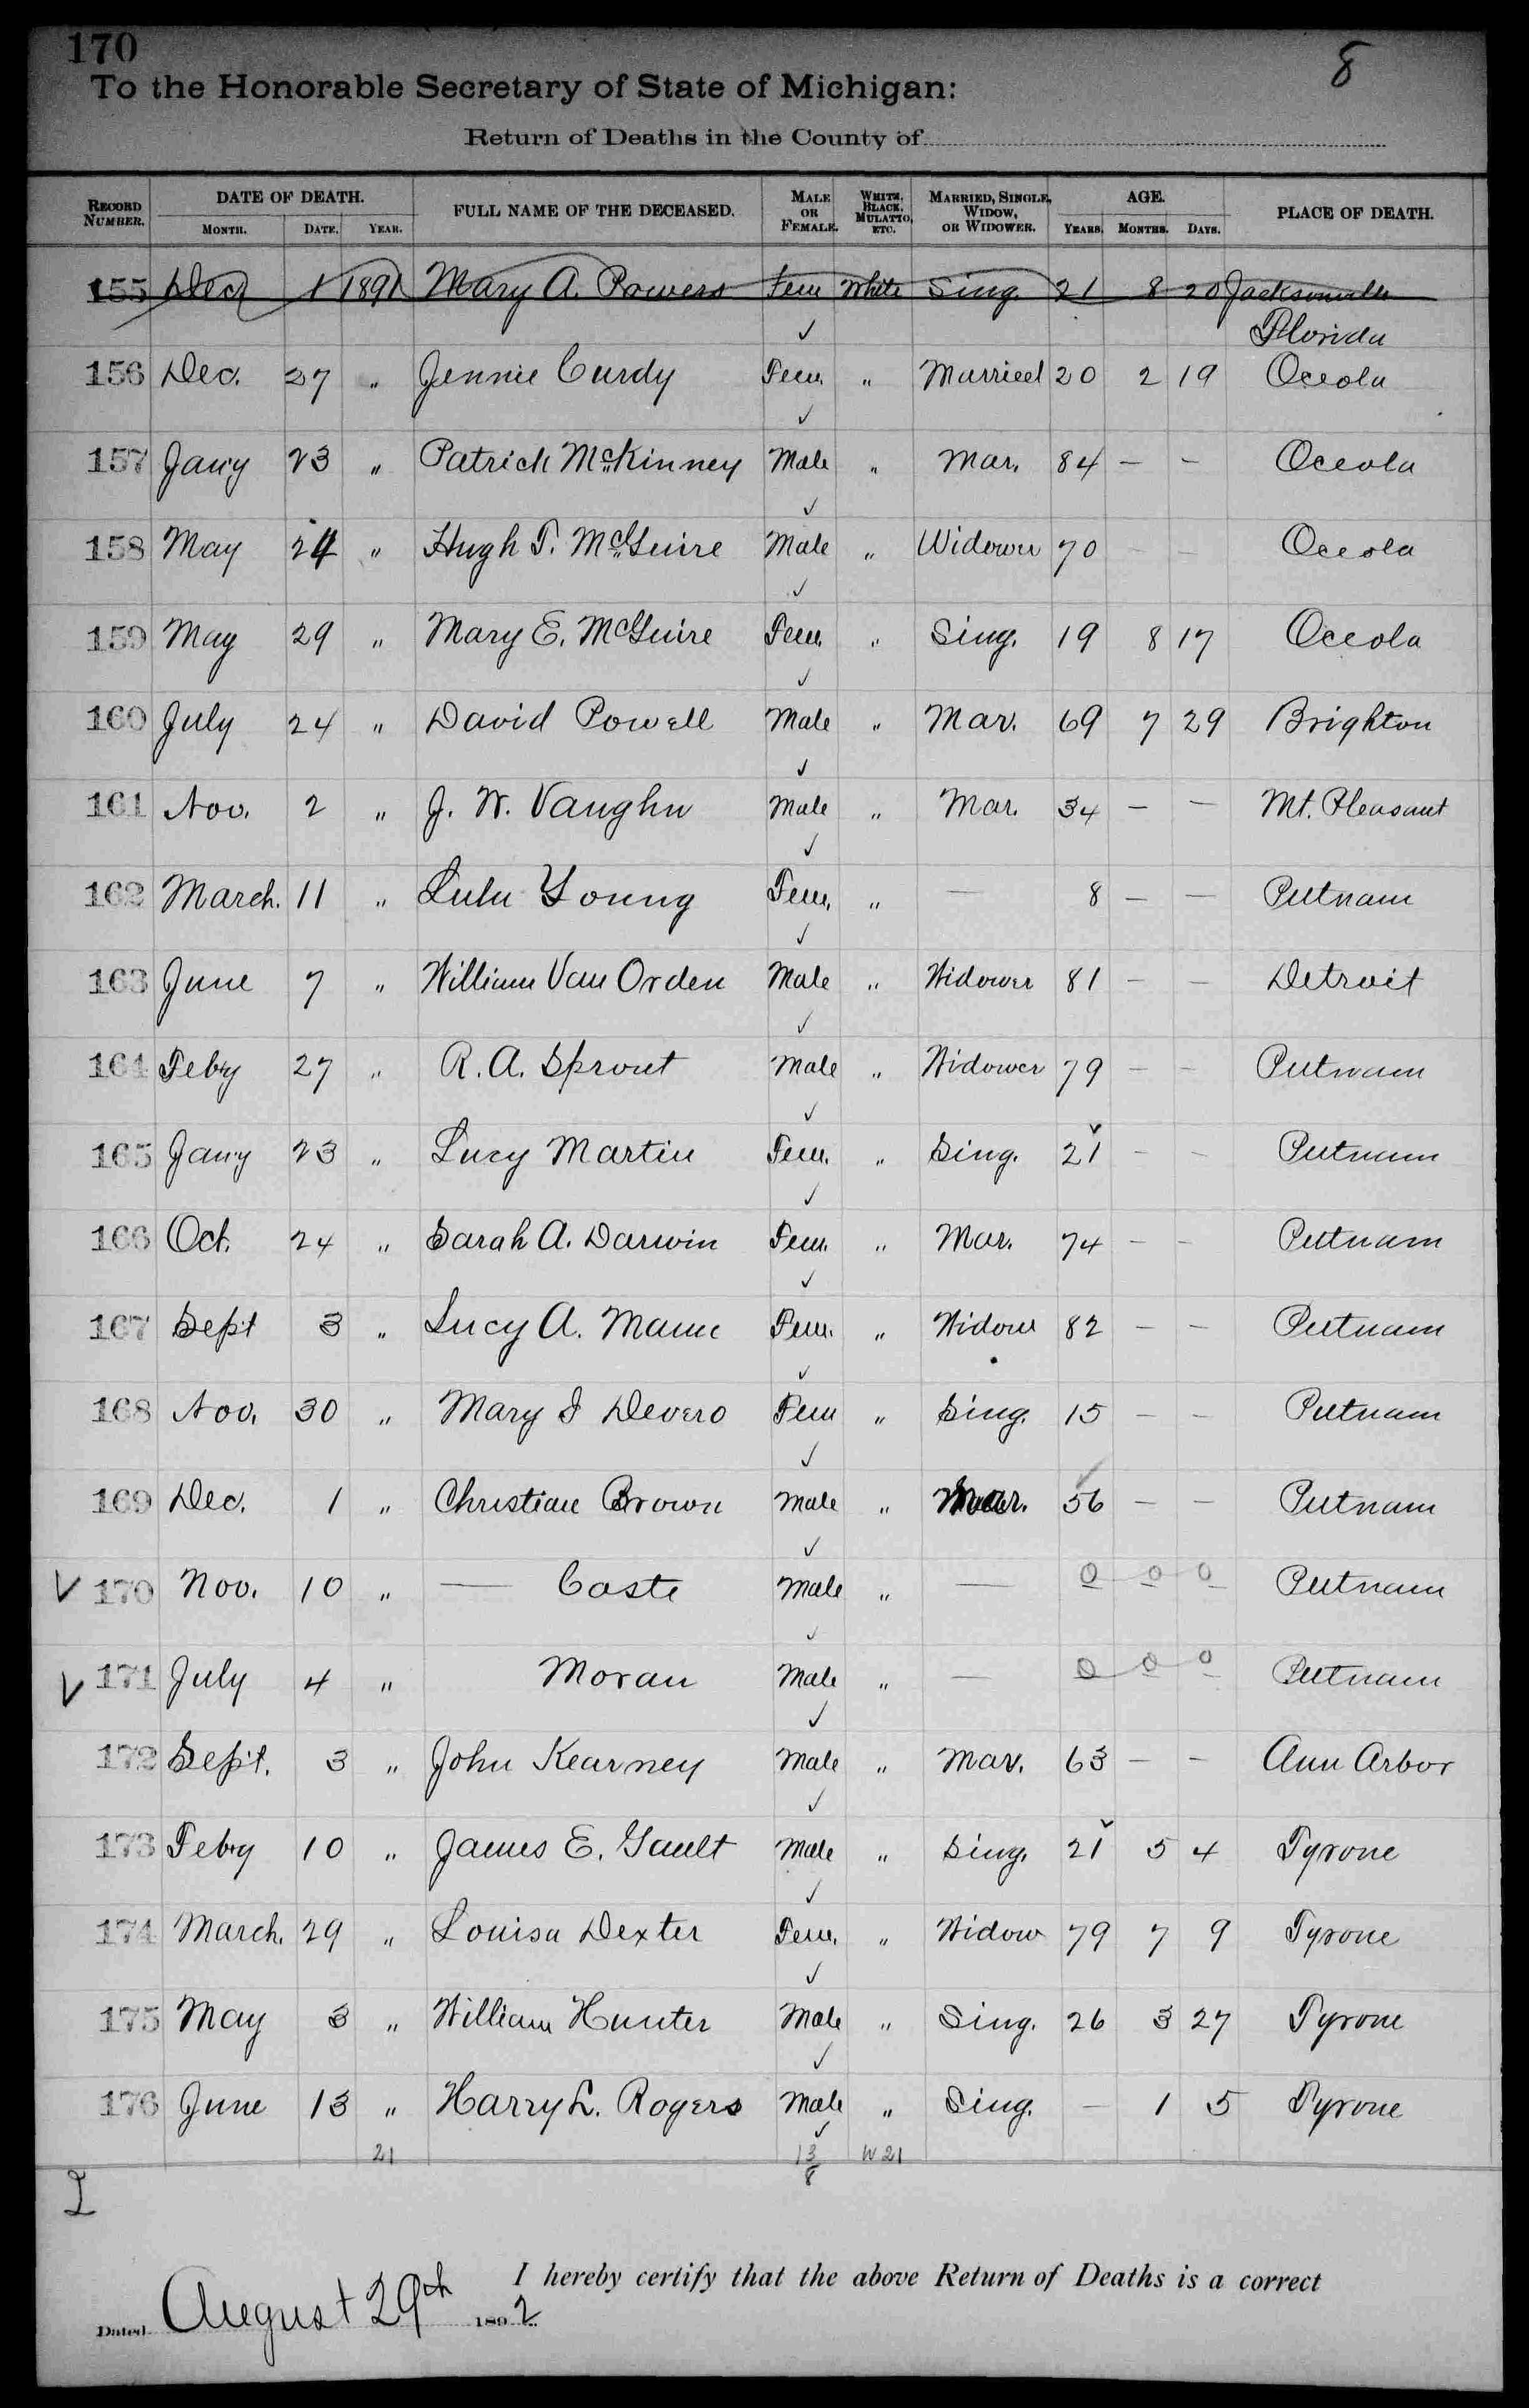 170
8
To the Honorable Secretary of State of Michigan:
Return of Deaths in the County of
RECORD NUMBER. DATE OF DEATH. MONTH. DATE. YEAR. FULL NAME OF THE DECEASED. MALE OR FEMALE. WHITE, BLACK, MULATTO, ETC. MARRIED, SINGLE, WIDOW, OR WIDOWER. AGE. YEARS. MONTHS. DAYS. PLACE OF DEATH.
155 Dec 1 1891 Mary A. Powers Fem White Sing. 21 8 20 Jacksonville
✓ Florida
156 Dec. 27 " Jennie Curdy Fem. " Married 20 2 19 Oceola
✓
157 Jany 23 " Patrick McKinney Male " Mar. 84 — — Oceola
✓
158 May 24 " Hugh T. McGuire Male " Widower 70 — — Oceola
✓
159 May 29 " Mary E. McGuire Fem. " Sing. 19 8 17 Oceola
✓
160 July 24 " David Powell Male " Mar. 69 7 29 Brighton
✓
161 Nov. 2 " J. W. Vaughn Male " Mar. 34 — — Mt. Pleasant
✓
162 March. 11 " Lulu Young Fem. " — 8 — — Putnam
✓
163 June 7 " William Van Orden Male " Widower 81 — — Detroit
✓
164 Feby 27 " R. A. Sprout Male " Widower 79 — — Putnam
✓
165 Jany 23 " Lucy Martin Fem. " Sing. 21 — — Putnam
✓
166 Oct. 24 " Sarah A. Darwin Fem. " Mar. 74 — — Putnam
✓
167 Sept 3 " Lucy A. Mann Fem. " Widow 82 — — Putnam
✓
168 Nov. 30 " Mary I Devero Fem " Sing. 15 — — Putnam
✓
169 Dec. 1 " Christian Brown Male " Mar. 56 — — Putnam
✓
✓ 170 Nov. 10 " — Coste Male " — 0 0 0 Putnam
✓
✓ 171 July 4 " Moran Male " — 0 0 0 Putnam
✓
172 Sept. 3 " John Kearney Male " Mar. 63 — — Ann Arbor
✓
173 Feby 10 " James E. Gault Male " Sing. 21 5 4 Tyrone
✓
174 March. 29 " Louisa Dexter Fem. " Widow 79 7 9 Tyrone
✓
175 May 3 " William Hunter Male " Sing. 26 3 27 Tyrone
✓
176 June 13 " Harry L. Rogers Male " Sing. — 1 5 Tyrone
✓
21 13/8 W 21
I hereby certify that the above Return of Deaths is a correct
Dated August 29th 1892